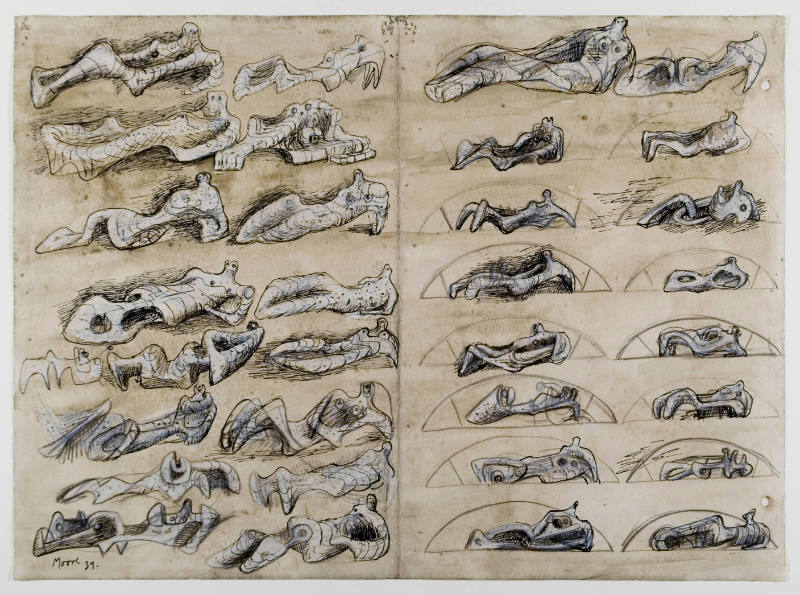 Moore 39.